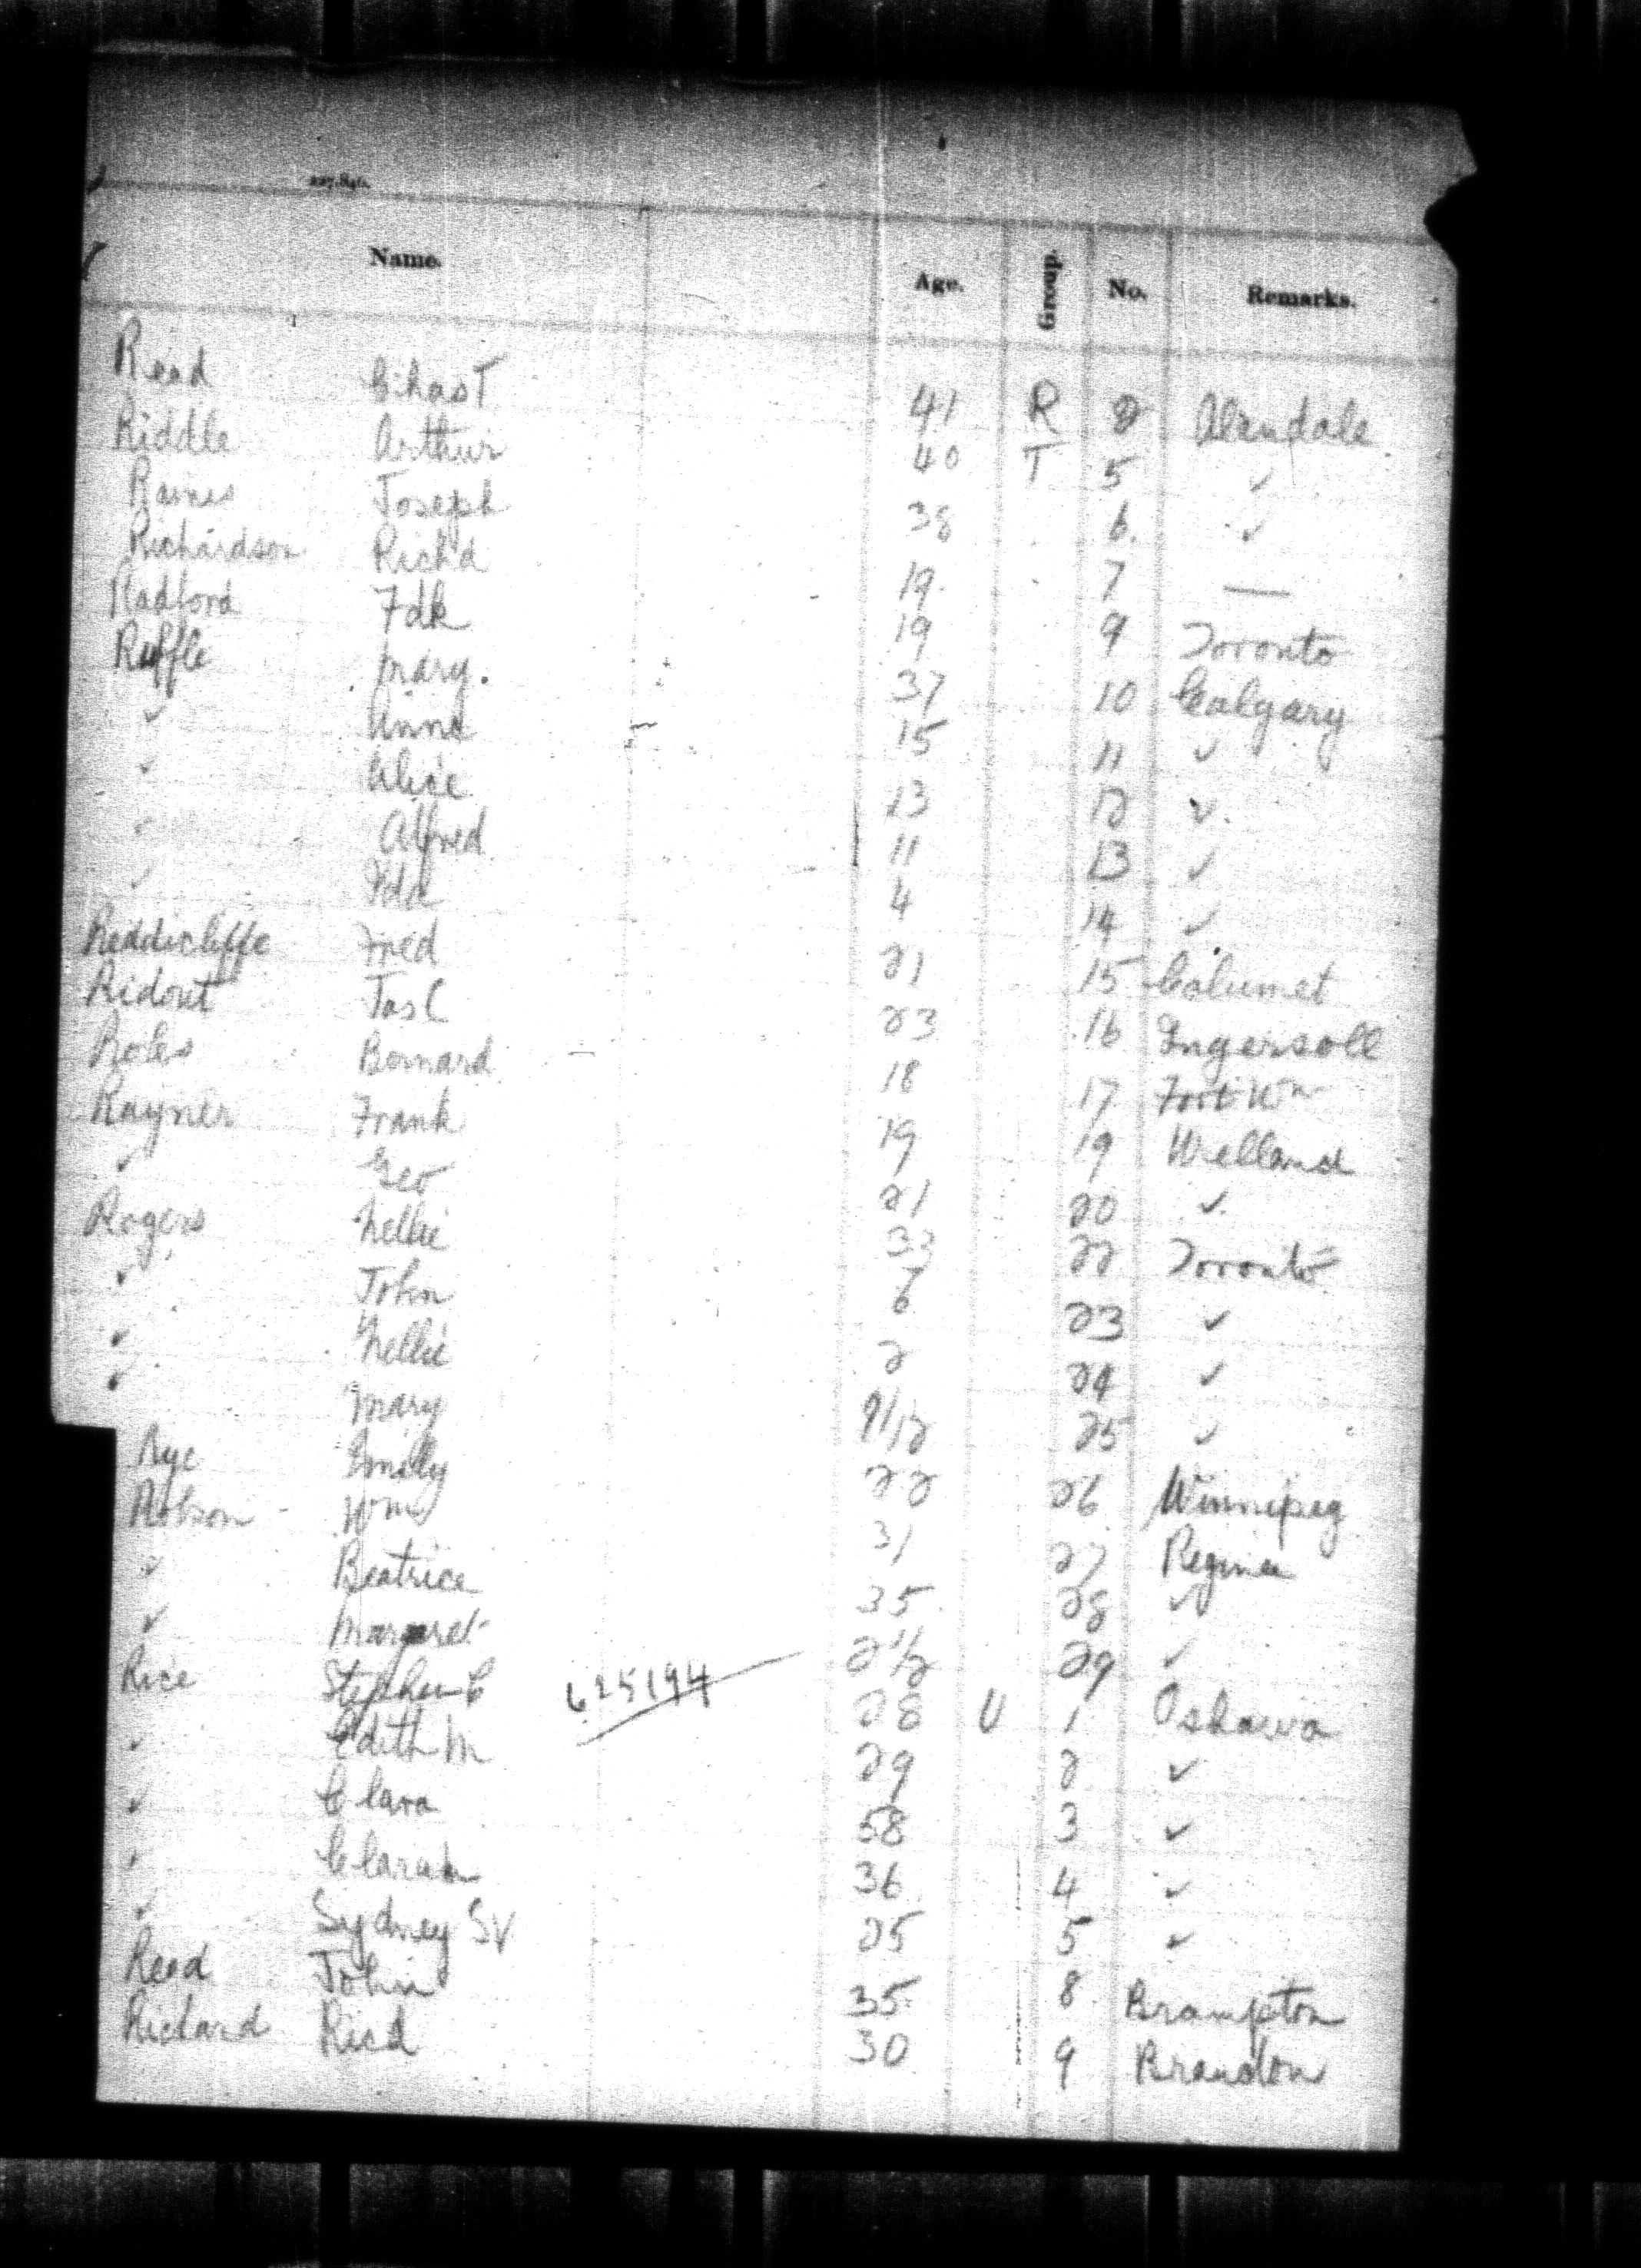 227,846.
Name. Age. Group. No. Remarks.
Read Chas T 41 R 2 Alandale
Riddle Arthur 40 T 5 ✓
Raines Joseph 38 6. ✓
Richardson Rich'd 19 7 —
Radford Fdk 19 9 Toronto
Ruffle Mary. 37 10 Calgary
✓ Anna 15 11 ✓
✓ Alice 13 12 ✓
✓ Alfred 11 13 ✓
✓ Fdk 4 14 ✓
Reddicliffe Fred 21 15 Calumet
Ridout Jas C 23 16 Ingersoll
Roles Bernard 18 17 Fort Wm
Rayner Frank 19 19 Welland
✓ Geo 21 20 ✓
Rogers Nellie 33 22 Toronto
✓ John 6 23 ✓
✓ Nellie 2 24 ✓
✓ Mary 9/12 25 ✓
Rye Emily 22 26 Winnipeg
Robson Wm 31 27 Regina
✓ Beatrice 35 28 ✓
✓ Margaret 2 1/2 29 ✓
Rice Stephen C 625194 28 U 1 Oshawa
✓ Edith M 29 2 ✓
✓ Clara 58 3 ✓
✓ 36 4 ✓
✓ Sydney SV 25 5 ✓
Reed John 35 8 Brampton
Richard Ricd 30 9 Brandon